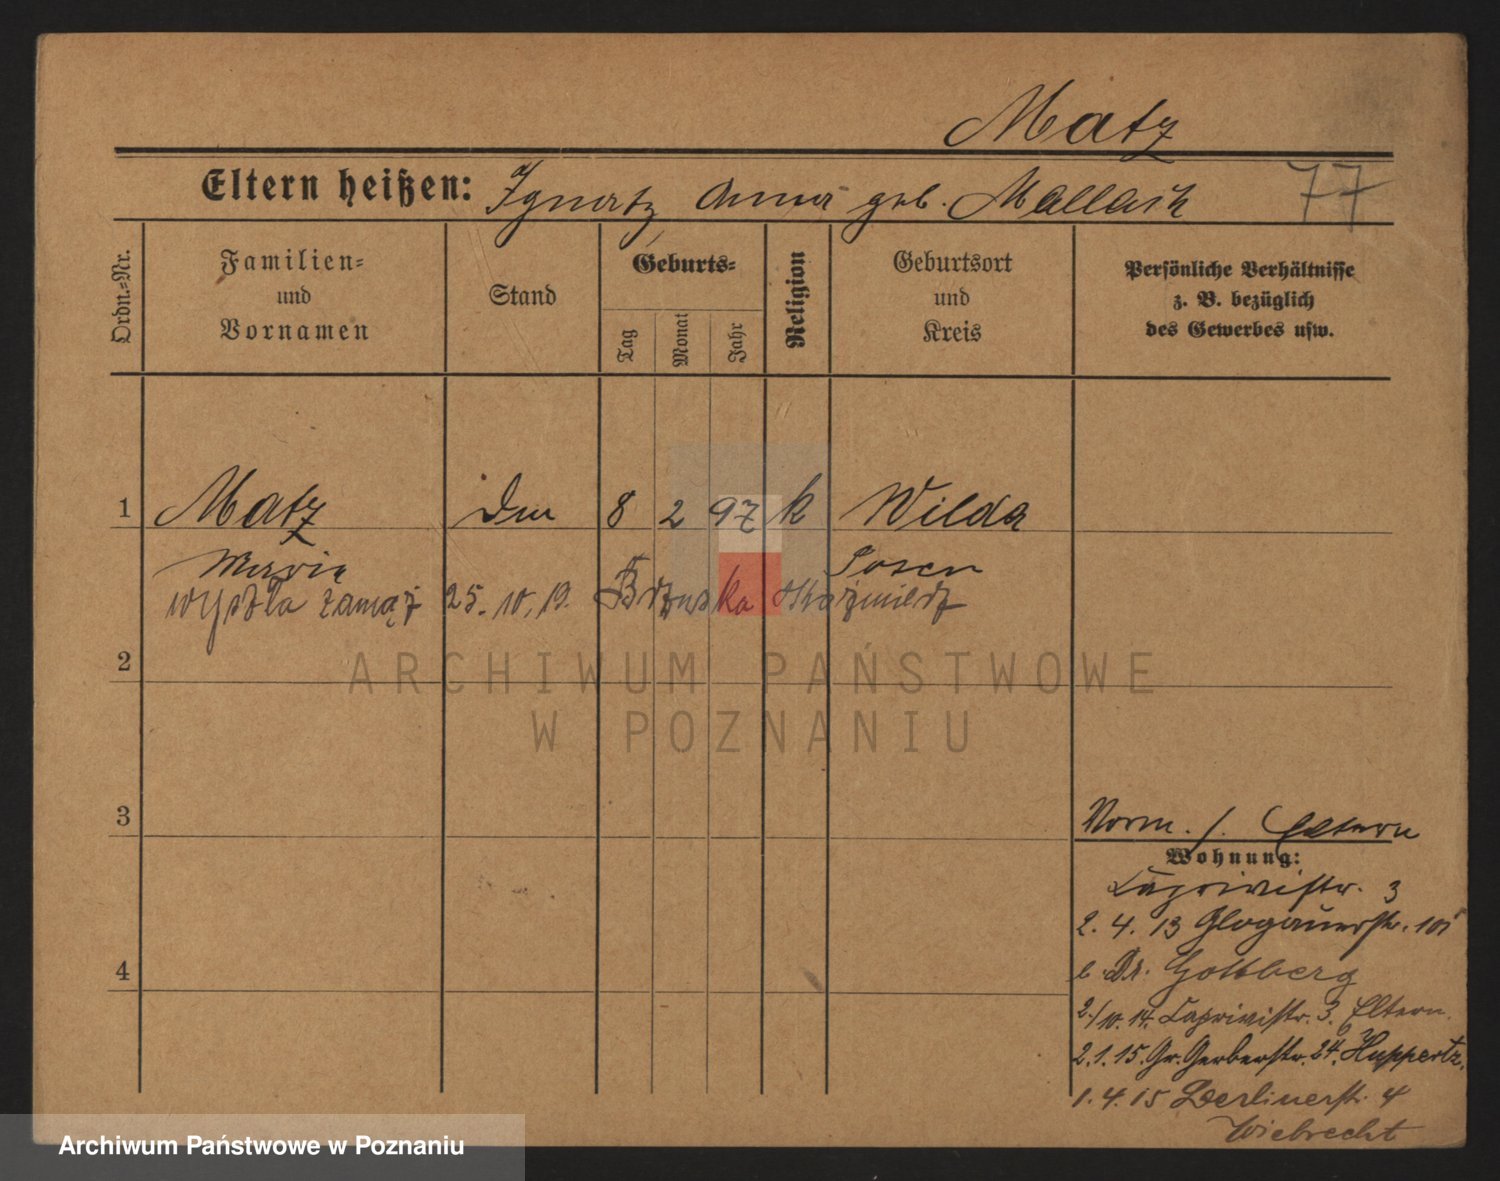 Matz
Eltern heißen: Ignatz Anna geb. Mallach
77
Ordn.-Nr.
Familien- und Vornamen
Stand
Geburts-
Tag
Monat
Jahr
Religion
Geburtsort und Kreis
Persönliche Verhältnisse
z. B. bezüglich
des Gewerbes usw.
1 Matz 8 2 97 k Wilda
Maria Posen
wyszła zamąż 25. 10. 19. Kaźmierz
2
3
4
Vorm. /. Eltern
Wohnung:
Caprivistr. 3
2. 4. 13 Glogauerstr. 105
b. Dr. Gottberg
2./10. 14. Caprivistr. 3. Eltern.
2. 1. 15. Gr. Gerberstr. 24. Huppertz.
1. 4. 15 Berlinerstr. 4
Wiebrecht
ARCHIWUM PAŃSTWOWE
W POZNANIU
Archiwum Państwowe w Poznaniu